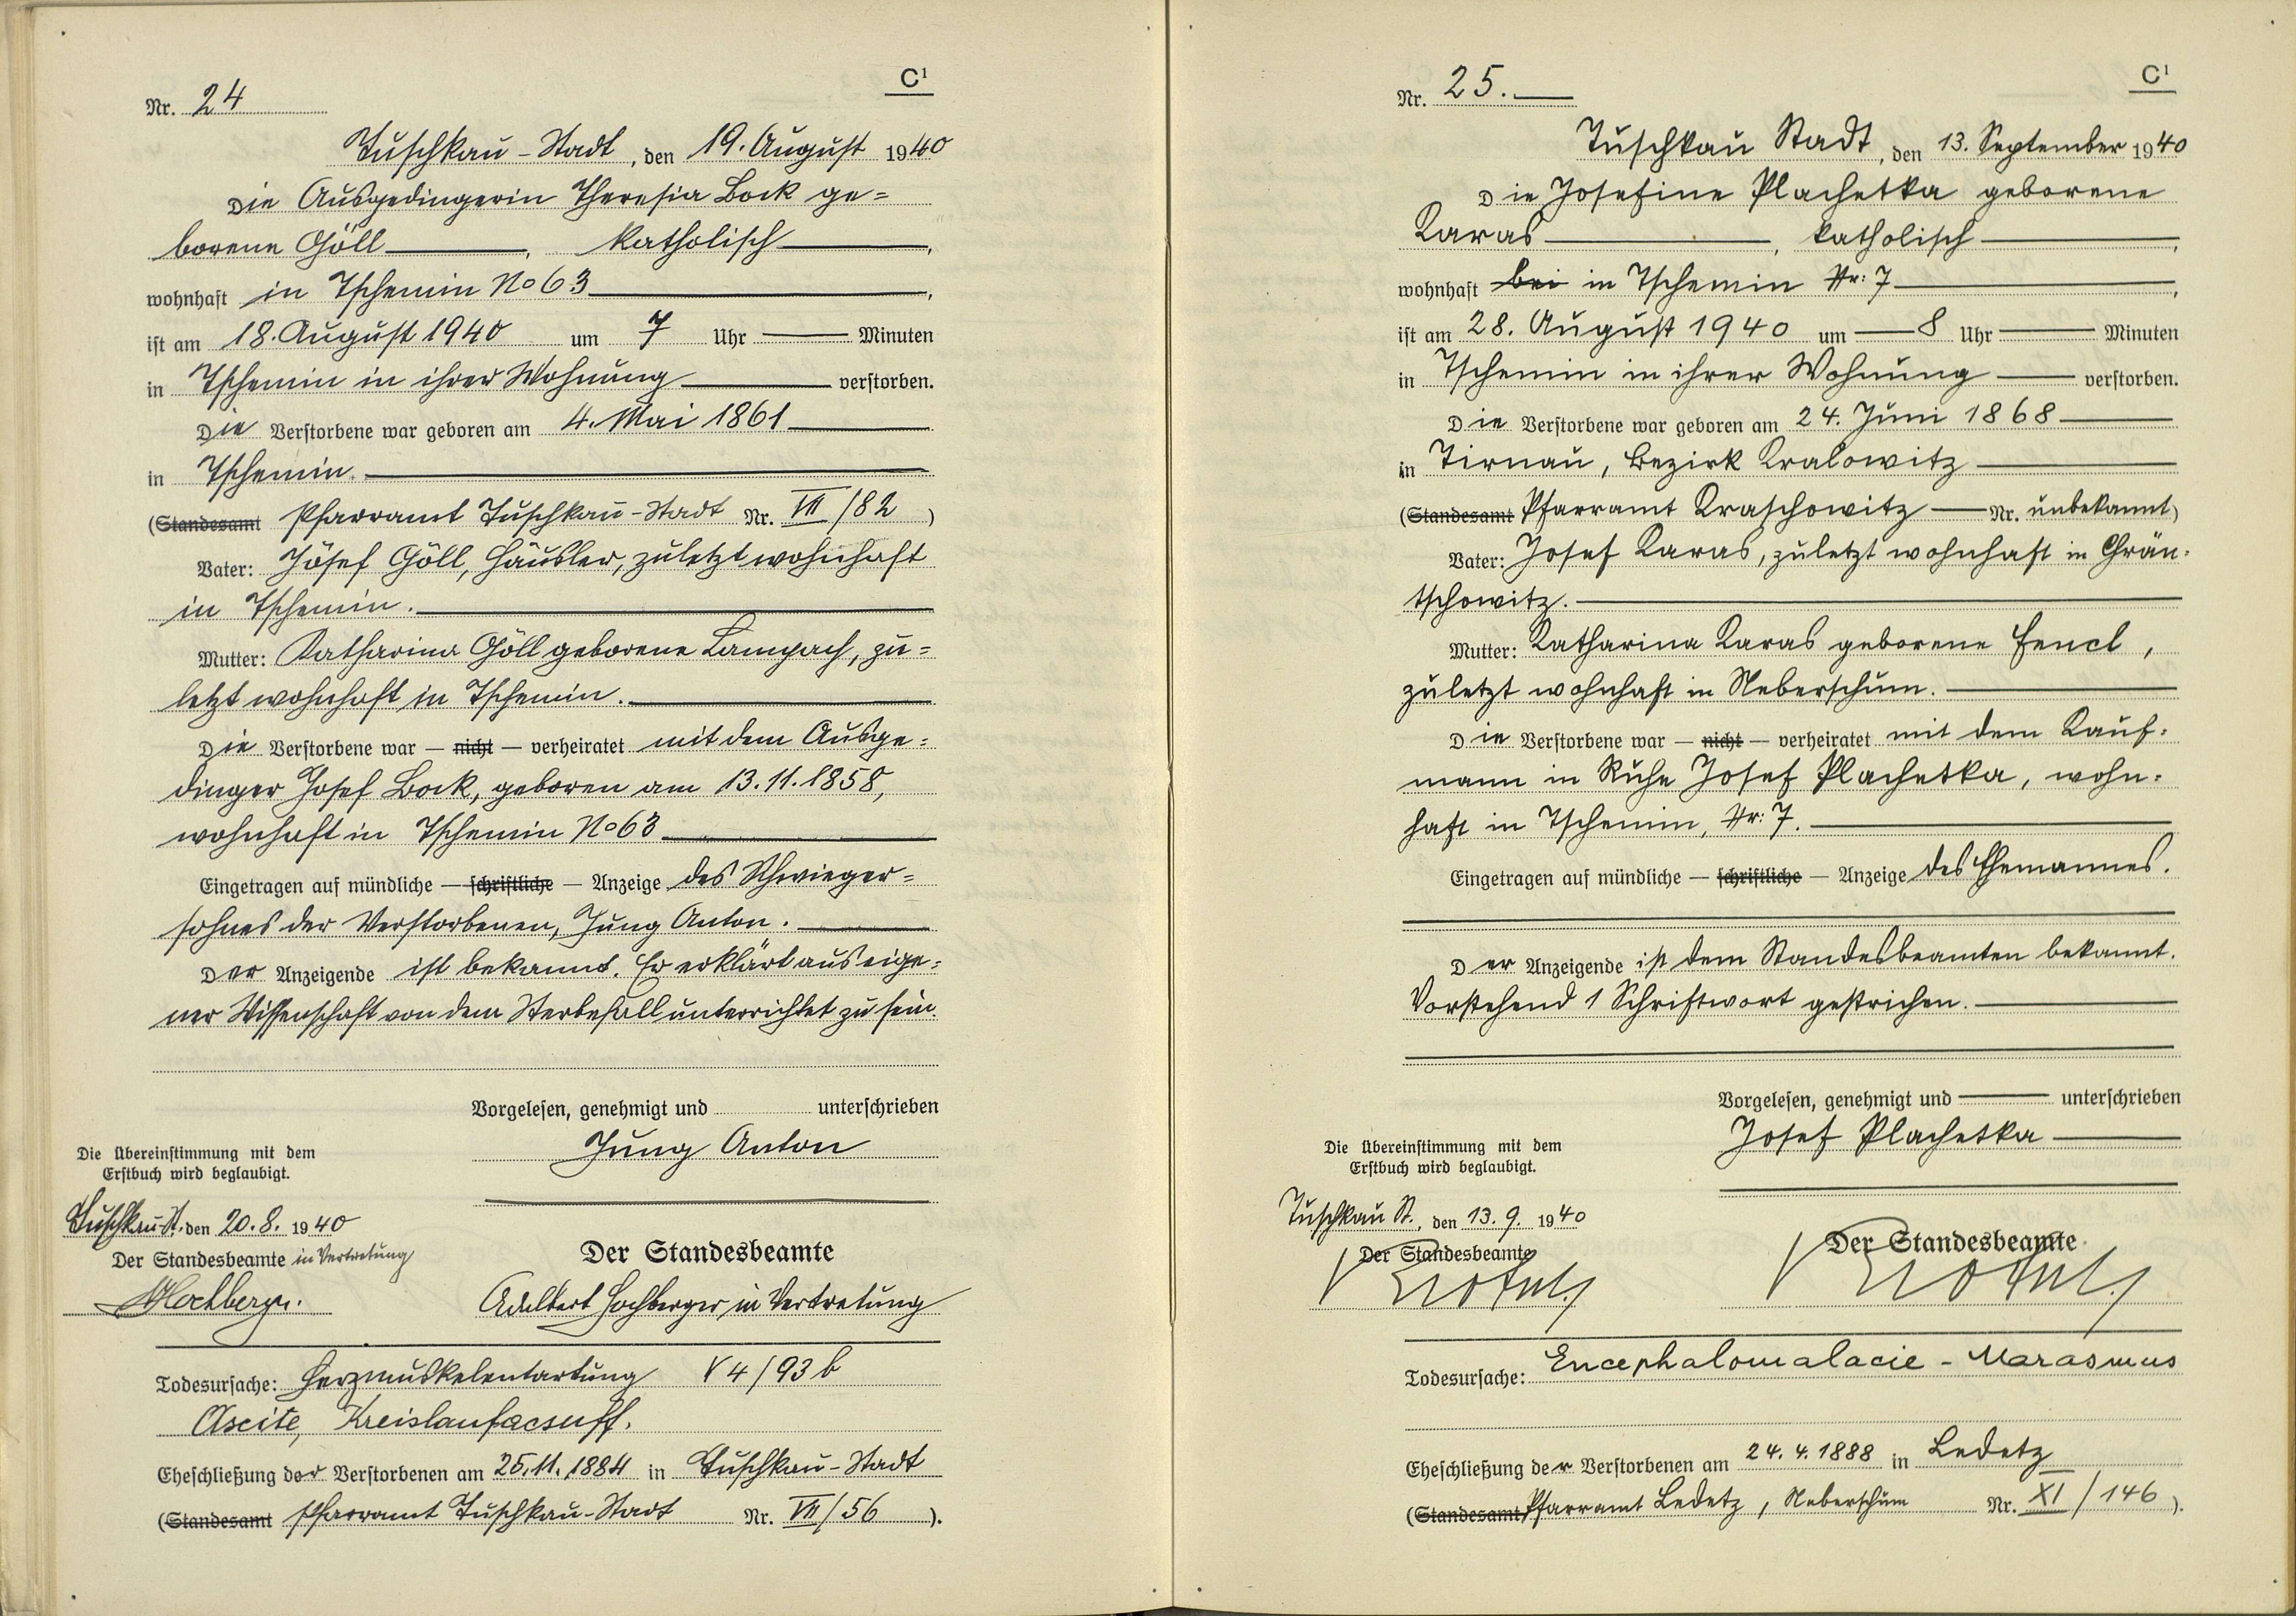 C¹
Nr. 24
Tuschkau-Stadt, den 19. August 1940
Die Ausgedingerin Theresia Bock ge=
borene Göll, katholisch,
wohnhaft in Tschemin No 63,
ist am 18. August 1940 um 7 Uhr — Minuten
in Tschemin in ihrer Wohnung verstorben.
Die Verstorbene war geboren am 4. Mai 1861
in Tschemin.
(Standesamt Pfarramt Tuschkau-Stadt Nr. VII/82)
Vater: Josef Göll, Häusler, zuletzt wohnhaft
in Tschemin.
Mutter: Katharina Göll geborene Lampach, zu=
letzt wohnhaft in Tschemin.
Die Verstorbene war — nicht — verheiratet mit dem Ausge=
dinger Josef Bock, geboren am 13.11.1858,
wohnhaft in Tschemin No 63
Eingetragen auf mündliche — schriftliche — Anzeige des Schwieger=
sohnes der Verstorbenen, Jung Anton.
Der Anzeigende ist bekannt. Er erklärt aus eige=
ner Wissenschaft von dem Sterbefall unterrichtet zu sein
Vorgelesen, genehmigt und unterschrieben
Jung Anton
Die Übereinstimmung mit dem
Erstbuch wird beglaubigt.
Tuschkau-St. den 20.8. 1940
Der Standesbeamte in Vertretung
Hochberger.
Der Standesbeamte
Adalbert Hochberger in Vertretung
Todesursache: Herzmuskelentartung V 4/93 b
Ascite,
Eheschließung der Verstorbenen am 25.11.1884 in Tuschkau-Stadt
(Standesamt Pfarramt Tuschkau-Stadt Nr. VII/56).
C¹
Nr. 25.
Tuschkau Stadt, den 13. September 1940
Die Josefine Plachetka geborene
Karas, katholisch,
wohnhaft bei in Tschemin Nr: 7,
ist am 28. August 1940 um — 8 Uhr — Minuten
in Tschemin in ihrer Wohnung — verstorben.
Die Verstorbene war geboren am 24. Juni 1868
in Tirnau, Bezirk Kralowitz
(Standesamt Pfarramt Kraschowitz — Nr. unbekannt)
Vater: Josef Karas, zuletzt wohnhaft in Grän-
tschowitz.
Mutter: Katharina Karas geborene Fencl,
zuletzt wohnhaft in Neberschum.
Die Verstorbene war — nicht — verheiratet mit dem Kauf-
mann in Ruhe Josef Plachetka, wohn-
haft in Tschemin, Nr: 7.
Eingetragen auf mündliche — schriftliche — Anzeige des Ehemannes.
Der Anzeigende ist dem Standesbeamten bekannt.
Vorstehend 1 Schriftwort gestrichen.
Vorgelesen, genehmigt und — unterschrieben
Josef Plachetka
Die Übereinstimmung mit dem
Erstbuch wird beglaubigt.
Tuschkau St., den 13.9. 1940
Der Standesbeamte
Der Standesbeamte
Todesursache: Encephalomalacie - Marasmus
Eheschließung der Verstorbenen am 24.4.1888 in Ledetz
(Standesamt Pfarramt Ledetz, Neberschum Nr. XI/146).